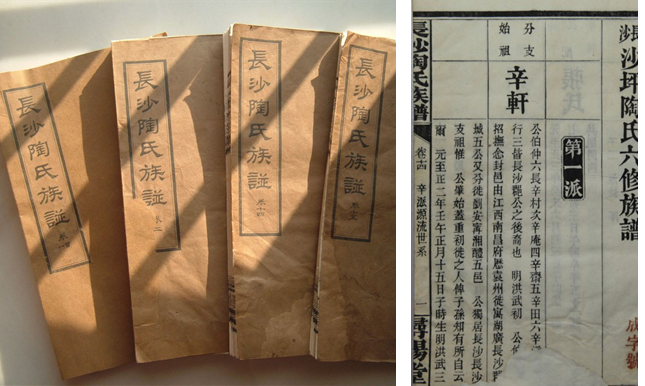 長沙陶氏族譜
長沙陶氏族譜
卷二
長沙陶氏族譜
卷十四
長沙陶氏族譜
長沙坪陶氏六修族譜
成字號
第一派
分支
始祖
辛軒
公伯仲六長辛村次辛庵四辛齋五辛田六辛
行三皆長沙郡公之後裔也 明洪武初 公
招撫念封邑由江西南昌府歷袁州徙寓湖廣長沙
城五公又分徙瀏安甯湘醴五邑 公獨居長沙長沙
支祖惟 公肇始蓋重初徙之人俾子孫知有所自云
爾 元至正二年壬午正月十五日子時生明洪武三
長沙陶氏族譜
卷十四 辛派源流世系
一
尋陽堂